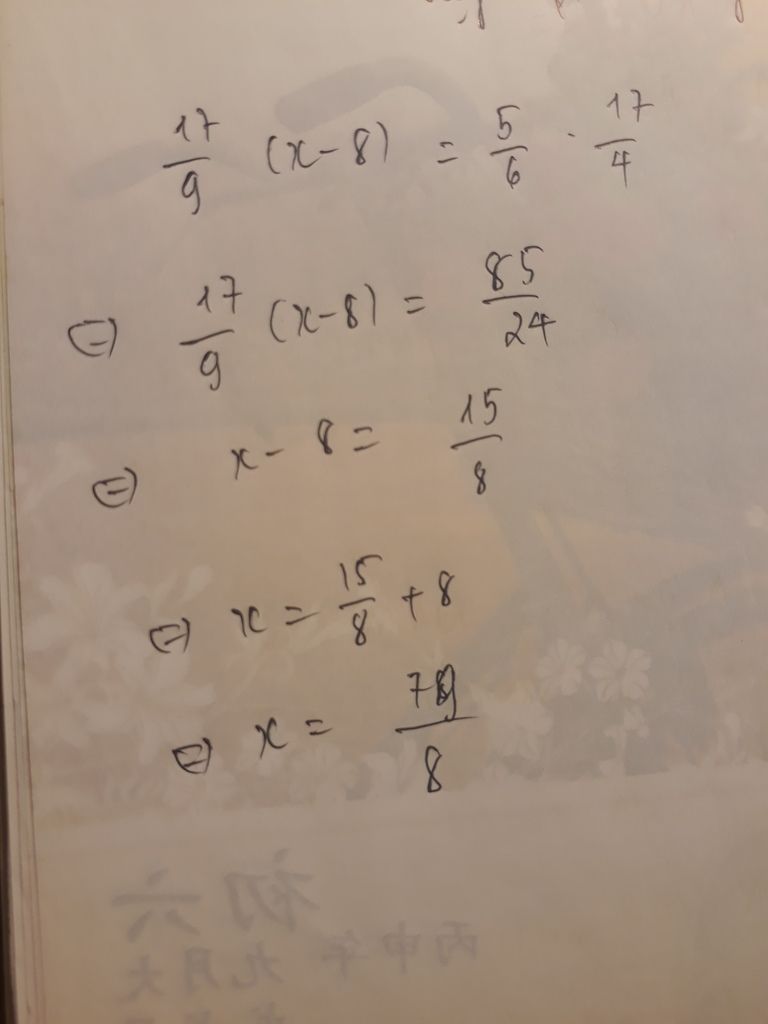 17/9 (x-8) = 5/6 · 17/4
⇔ 17/9 (x-8) = 85/24
⇔ x - 8 = 15/8
⇔ x = 15/8 + 8
⇔ x = 79/8
初六
丙申年九月大